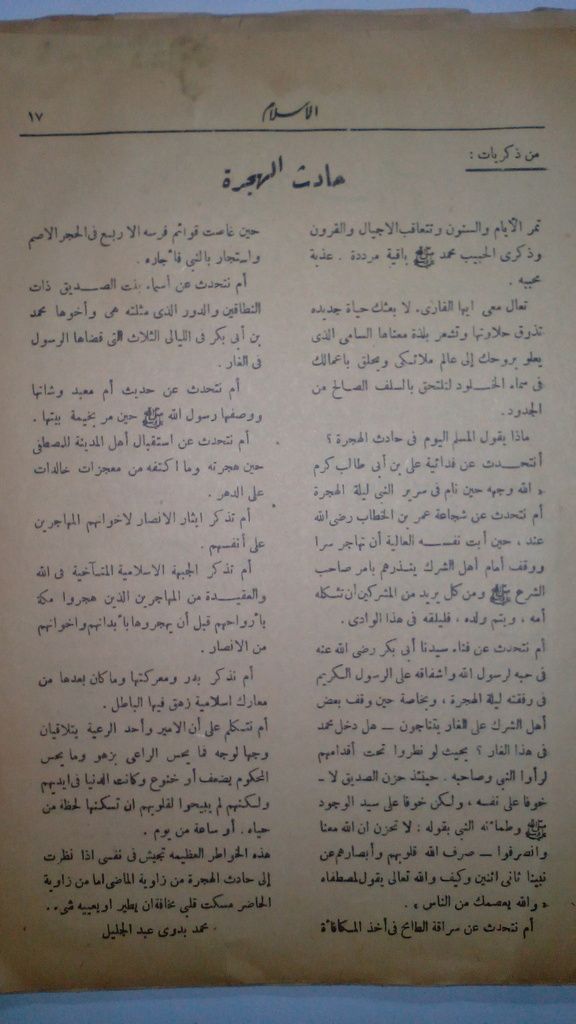 الاسلام
١٧
من ذكريات :
حادث الهجرة
تمر الأيام والسنون وتتعاقب الاجيال والقرون
وذكرى الحبيب محمد ﷺ باقية مرددة . عذبة
محببه .
تعال معى ايها القارىء لا بعثك حياة جديده
تذوق حلاوتها وتشعر بلذة معناها السامى الذى
يعلو بروحك إلى عالم ملائكى ويحلق باعمالك
فى سماء الخلود لتلتحق بالسلف الصالح من
الجدود .
ماذا يقول المسلم اليوم فى حادث الهجرة ؟
أنتحدث عن فدائية على بن أبى طالب كرم
الله وجهه حين نام فى سرير النبى ليلة الهجرة
أم نتحدث عن شجاعة عمر بن الخطاب رضى الله
عنه ، حين أبت نفسه العالية أن تهاجر سرا
ووقف أمام أهل الشرك ينذرهم بامر صاحب
الشرع ﷺ ومن كل يريد من المشركين أن تثكله
أمه ، ويتم ولده ، فليلقه فى هذا الوادى .
أم نتحدث عن فناء سيدنا أبى بكر رضى الله عنه
فى حبه لرسول الله واشفاقه على الرسول الكريم
فى رفقته ليلة الهجرة ، وبخاصة حين وقف بعض
أهل الشرك على الغار يتناجون — هل دخل محمد
فى هذا الغار ؟ بحيث لو نظروا تحت أقدامهم
لرأوا النبى وصاحبه . حينئذ حزن الصديق لا -
خوفا على نفسه ، ولكن خوفا على سيد الوجود
ﷺ وطمأنه النبى بقوله : لا تحزن ان الله معنا
وانصرفوا — صرف الله قلوبهم وأبصارهم عن
نبينا ثانى اثنين وكيف والله تعالى يقول لمصطفاه
« والله يعصمك من الناس » .
أم نتحدث عن سراقة الطامح فى أخذ المكافأة
حين غاصت قوائم فرسه الاربع فى الحجر الاصم
واستجار بالنبى فأجاره .
أم نتحدث عن أسماء بنت الصديق ذات
النطاقين والدور الذى مثلته هى وأخوها محمد
بن أبى بكر فى الليالى الثلاث التى قضاها الرسول
فى الغار .
أم نتحدث عن حديث أم معبد وشاتها
ووصفها رسول الله ﷺ حين مر بخيمة بيتها .
أم نتحدث عن استقبال أهل المدينة للمصطفى
حين هجرته وما اكتنفه من معجزات خالدات
على الدهر .
أم تذكر ايثار الانصار لاخوانهم المهاجرين
على أنفسهم .
أم تذكر الجبهة الاسلامية المتآخية فى الله
والعقيدة من المهاجرين الذين هجروا مكة
بأرواحهم قبل أن يهجروها بأبدانهم واخوانهم
من الانصار .
أم نذكر بدر ومعركتها وما كان بعدها من
معارك اسلامية زهق فيها الباطل .
أم نتكلم على أن الامير وأحد الرعية يتلاقيان
وجها لوجه فما يحس الراعى بزهو وما يحس
المحكوم بضعف أو خنوع وكانت الدنيا فى ايديهم
ولكنهم لم يبيحوا لقلوبهم ان تسكنها لحظة من
حياه . أو ساعة من يوم .
هذه الخواطر العظيمه تجيش فى نفسى اذا نظرت
إلى حادث الهجرة من زاوية الماضى اما من زاوية
الحاضر مسكت قلبى مخافة ان يطير او يعييه شىء . .
محمد بدوى عبد الجليل